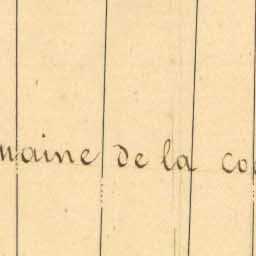 maine de la co